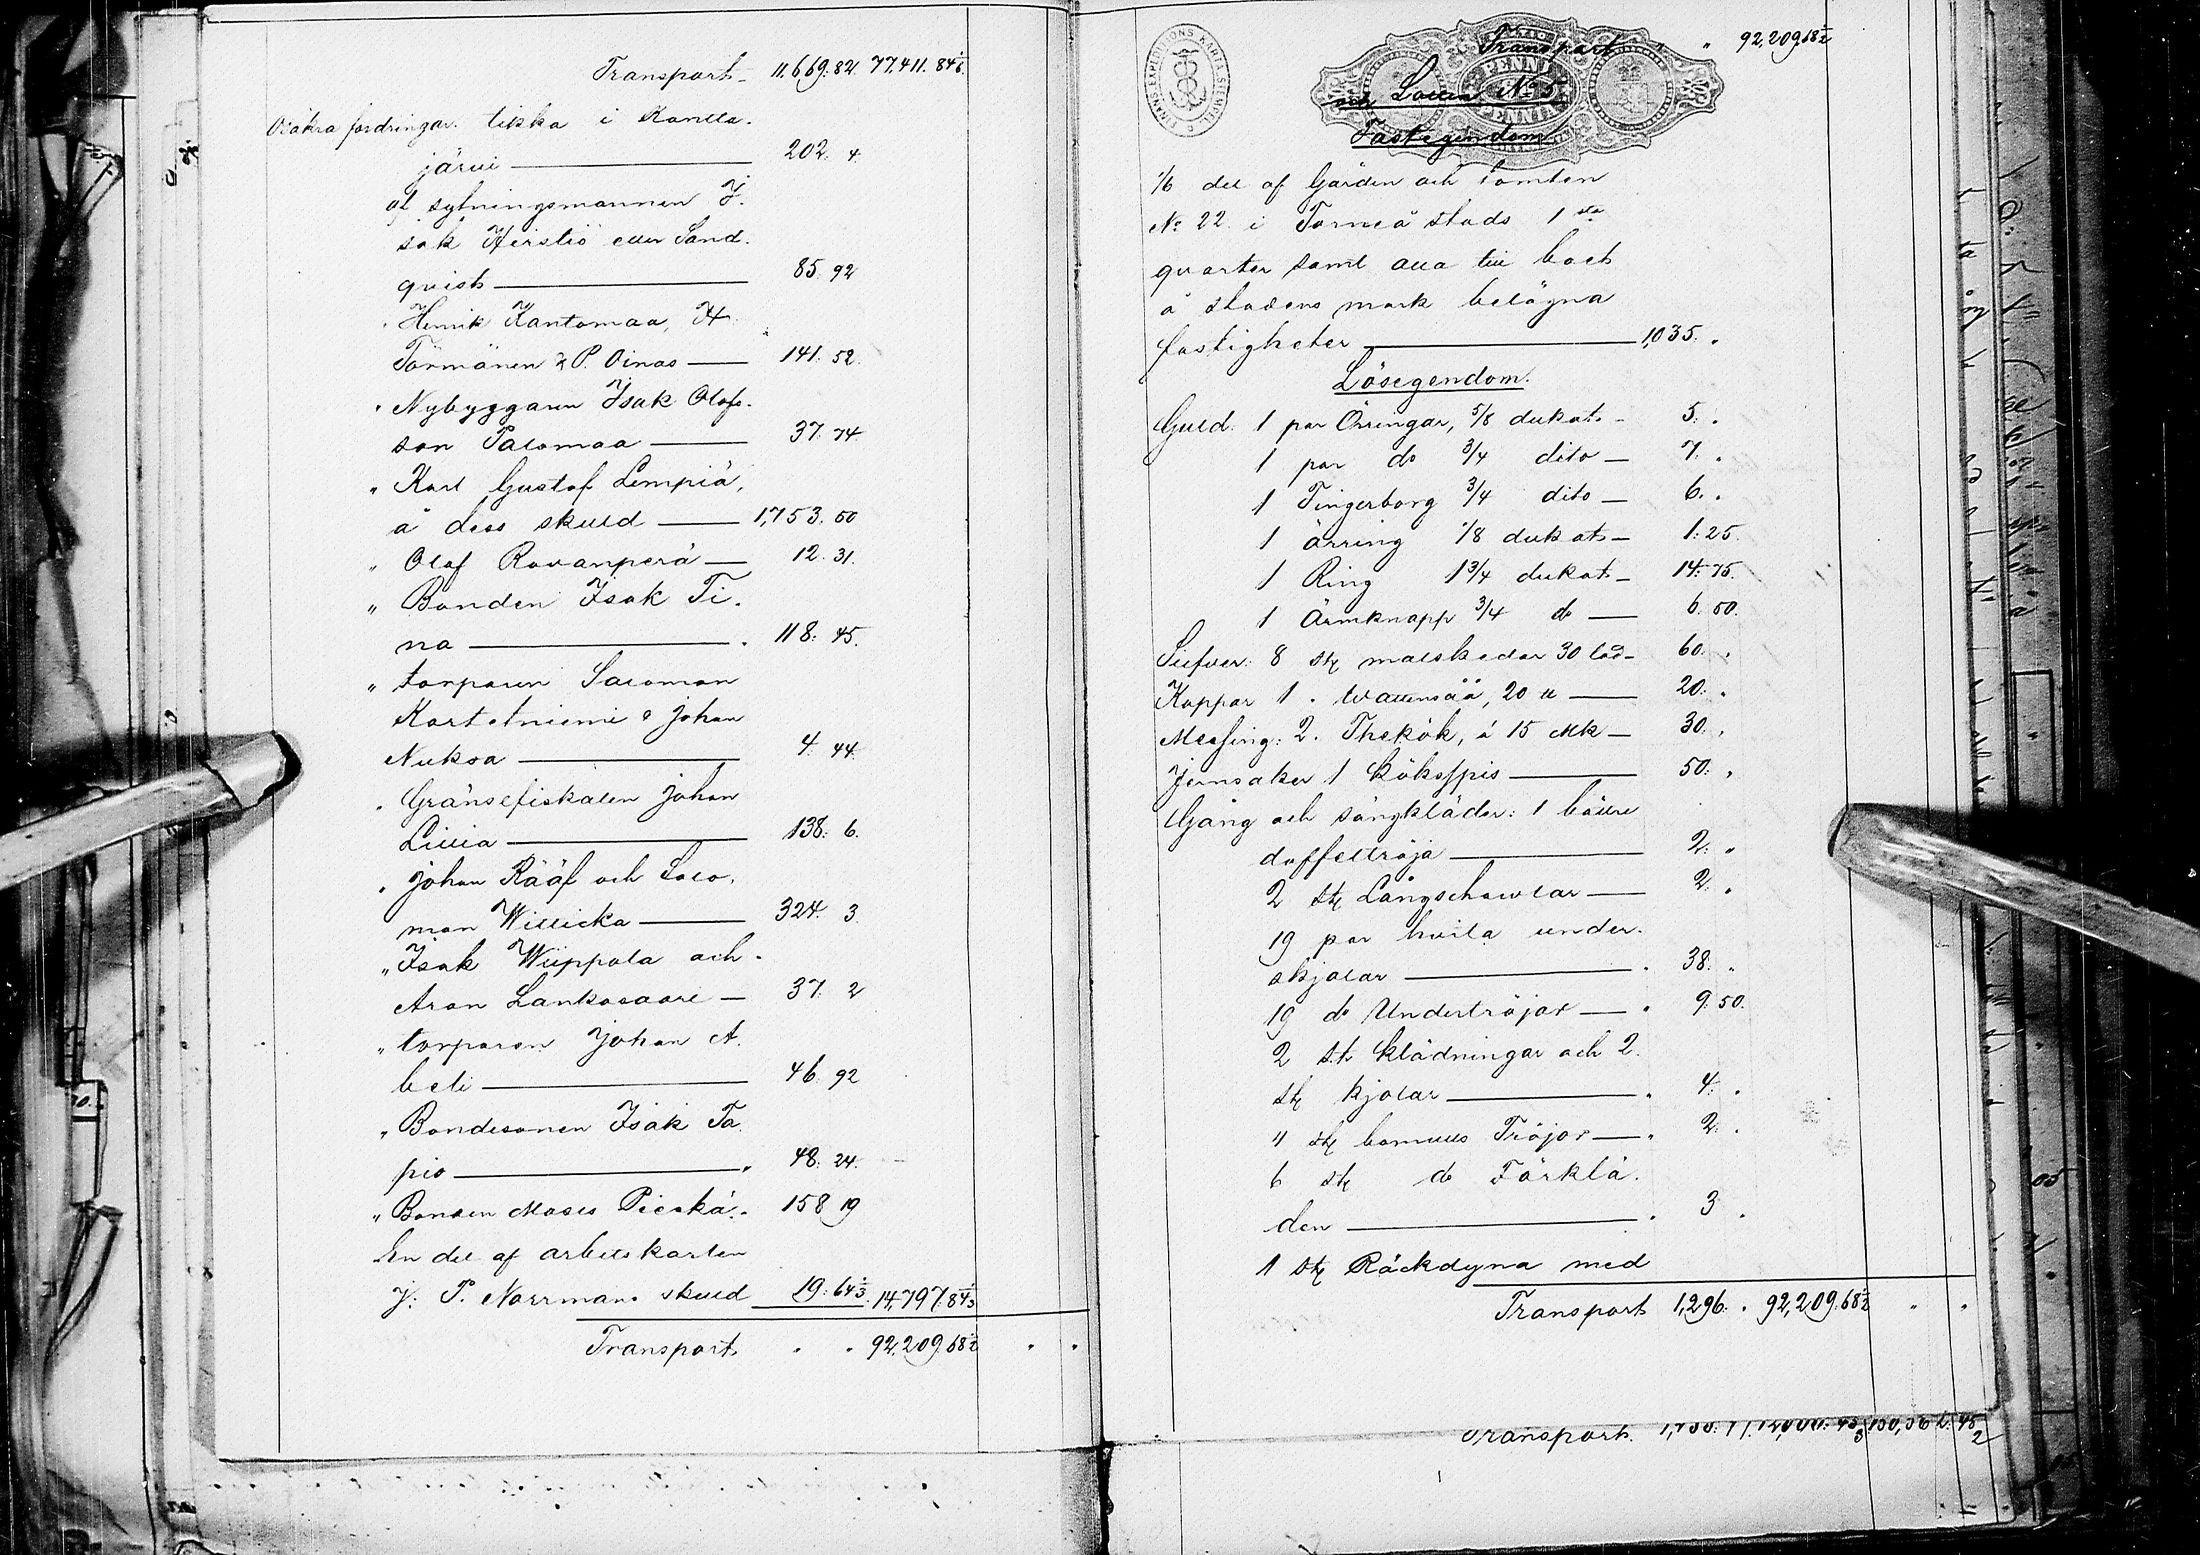 Transport 11,669. 82. 77,411. 84 1/6
Osäkra fordringar. tikka i Kanta-
järvi — 202. 4.
af sytningsmannen I-
sak Heistiö eller Sand-
qvist — 85. 92
" Henrik Kantomaa, H.
Törmänen & P. Oinas — 141. 52.
" Nybyggaren Isak Olofs-
son Palomaa — 37. 74
" Karl Gustaf Lempiä,
å dess skuld — 1,753. 50
" Olof Rovanperä — 12. 31.
" Bonden Isak Ti-
na — 118. 45.
" torparen Salomon
Kortetniemi & Johan
Nuksa — 4. 44.
" Gränsefiskalen Johan
Lillia — 138. 6.
" Johan Rääf och Salo-
mon Willicka — 324. 3.
" Isak Wiippola och
Aron Lankosaari — 37. 2
" torparen Johan A-
beli — 46. 92
" Bondesonen Isak Ta-
pio — 48. 24.
" Bonden Moses Pieskä 158 19
En del af arbetskarlen
J. P. Norrmans skuld 19. 64 1/3 14,797. 84 1/3
Transport " " 92,209. 68 1/2 " "
FINANS EXPEDITIONS KARTA STEMPEL
PENNI
PENNIÄ
Transport " " 92,209.68 1/2
och Lovisa No 5
Fastegendom
1/6 del af Gården och tomten
No 22 i Torneå stads 1sta
qvarter samt alla till boet
å stadens mark belägna
fastigheter — 1,035. "
Lösegendom.
Guld: 1 par Örringar, 5/8 dukat — 5. "
1 par do 3/4 dito — 7. "
1 Fingerborg 3/4 dito — 6. "
1 örring 1/8 dukat — 1: 25.
1 Ring 1 3/4 dukat — 14: 75.
1 Ärmknapp 3/4 do — 6. 50.
Silfver: 8 st. matskedar 30 lod — 60. "
Koppar 1 " 20 ℔ — 20. "
Messing: 2. Thekök, á 15 Mk — 30. "
Jernsaker 1 kökspis — 50. "
Gång och sängkläder: 1 bättre
doffeltröja — 2. "
2 st. Långschawlar — 2. "
19 par hvita under-
kjolar — 38. "
19 do Undertröjor — 9. 50.
2 st. klädningar och 2
st. kjolar — 4. "
4 st. bomulls Tröjor — 2. "
6 st. do Förklä-
den — 3. "
1 st. Räckdyna med
Transport 1,296. " 92,209. 68 1/2 " "
Transport.